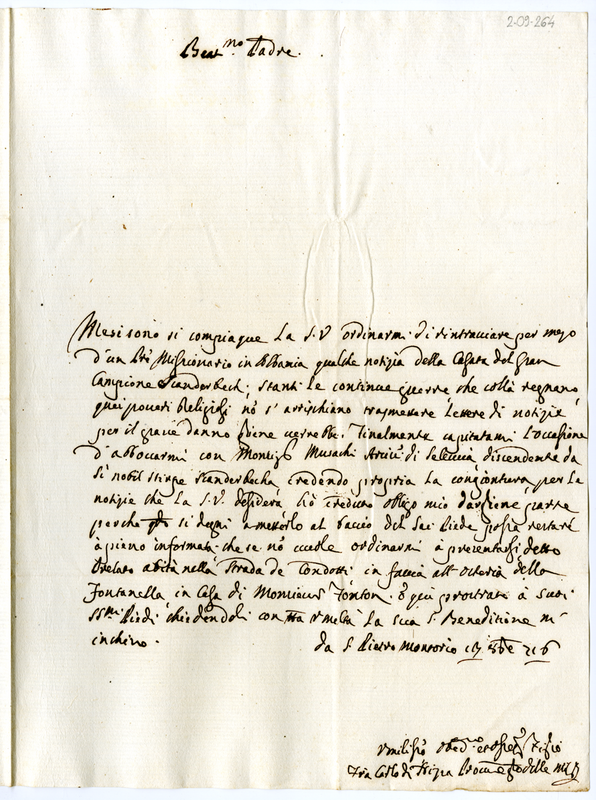 2-09-264
Beat.mo Padre.
Mesi sono si compiaque La S.V ordinarmi di rintracciare per mezo
d'un Pre Missionario in Albania qualche notizia della Casata del gran
Campione Scanderbech; stanti le continue guerre che collà regnano
quei poueri Religiosi nō s'arrischiano trasmettere lettere di notizie
per il graue danno gliene uerrebbe. Finalmente capitatami l'occasione
d'abboccarmi con Monsigr Musachi Arciuo di Seleucia, discendente da
si nobil stirpe scanderbecha credendo propria la congiontura per la
notizia che la S.V. desidera hò creduto obligo mio dargliene parte
perche si degni ametterlo al baccio del Sac. Piede possa restare
à pieno informata che se nō uuole ordinarmi à presentarsi detto
Prelato abita nella Strada de Condotti in faccia all'Osteria della
Fontanella in Casa di Monsieur Fonton. E qui prostrato à suoi
SSmi Piedi chiedendoli con tta Vmeltà la sua S. Beneditione m'
inchino.
da S. Pietro Montorio 17 8bre 716
Vmilissō Obedmo
Fra Carlo di
delle